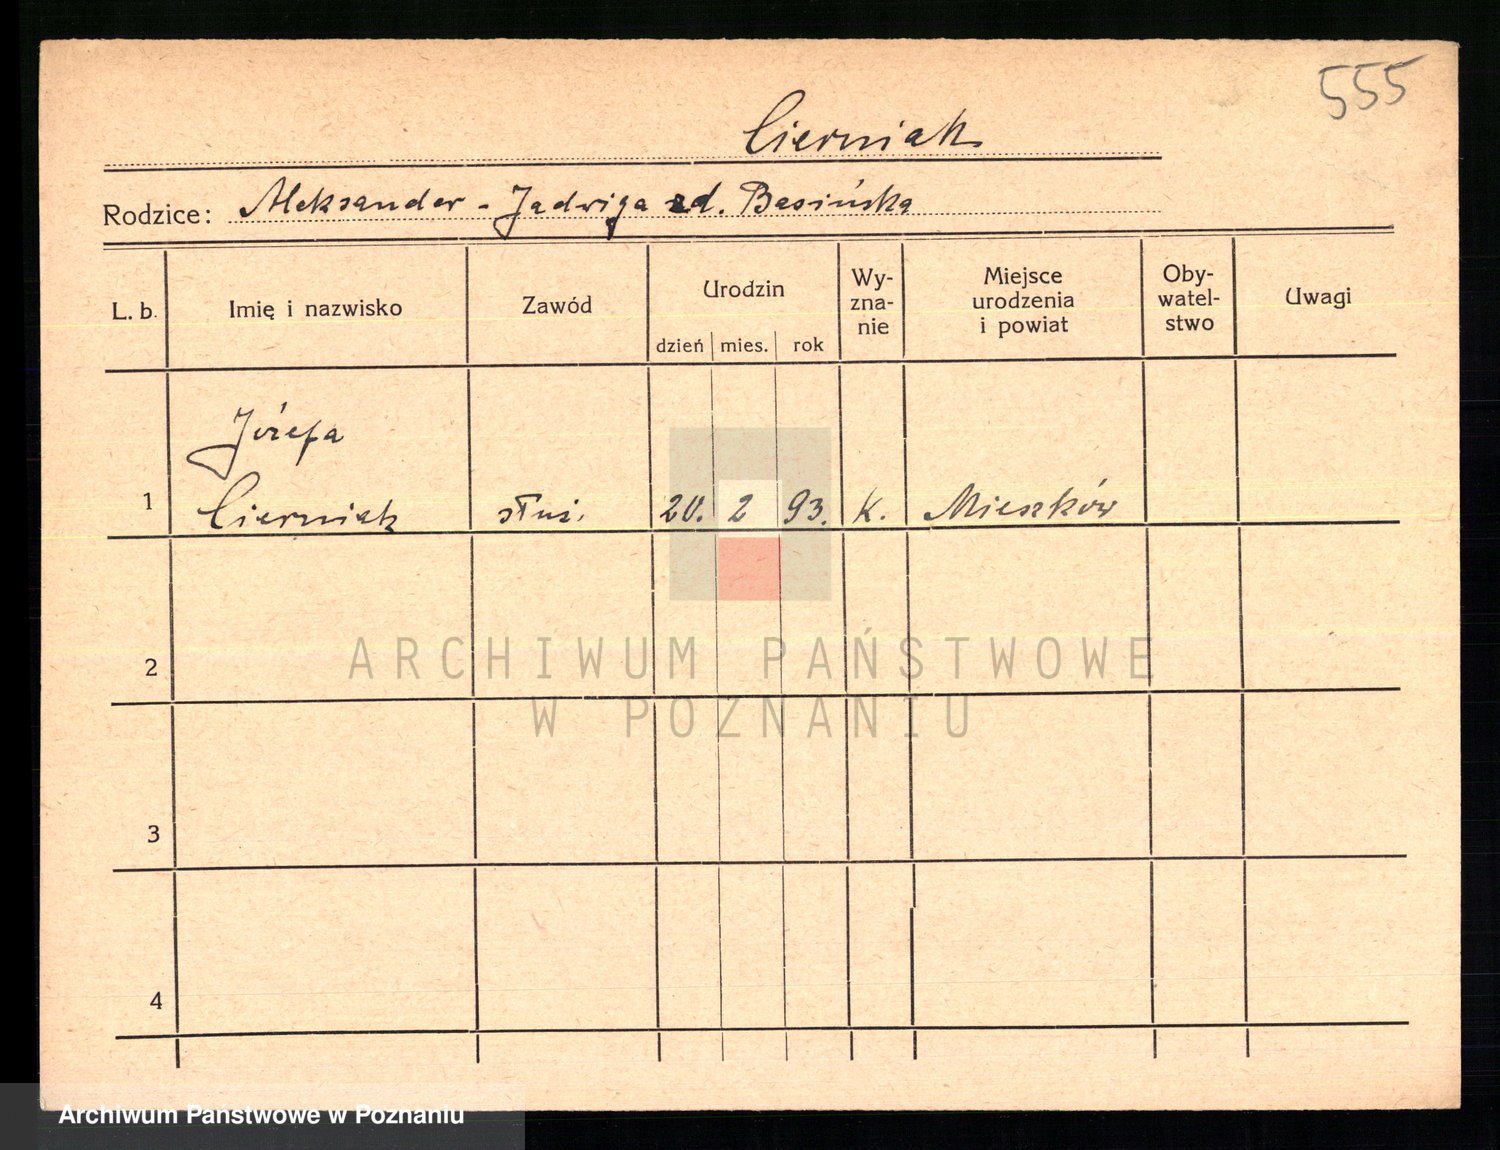 555
Cierniak
Rodzice: Aleksander - Jadwiga zd. Basińska
L. b. Imię i nazwisko Zawód Urodzin dzień mies. rok Wy-zna-nie Miejsce urodzenia i powiat Oby-watel-stwo Uwagi
Józefa
1 Cierniak służ. 20. 2 93. K. Mieszków
2
ARCHIWUM PAŃSTWOWE
W POZNANIU
3
4
Archiwum Państwowe w Poznaniu